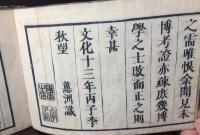 之需唯恨余聞見未
博考證亦疎庶幾博
學之士改而正之則
幸甚
文化十三年丙子季
秋望
蕙洲識